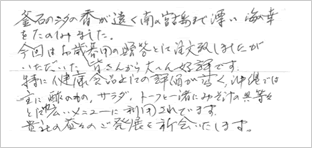 釜石のシダの香が遠く南の宮島まで漂い海の幸
をたのしみました。
今回はお歳暮用の贈答として注文致しましたが
いただいた皆さんから大へん好評です。
特に健康食品としての評価が高く、沖縄では
主に酢のもの、サラダ、トーフと一緒にみそ汁の具等々
と幅広いメニューに利用されています。
貴社の益々のご発展を祈念いたします。